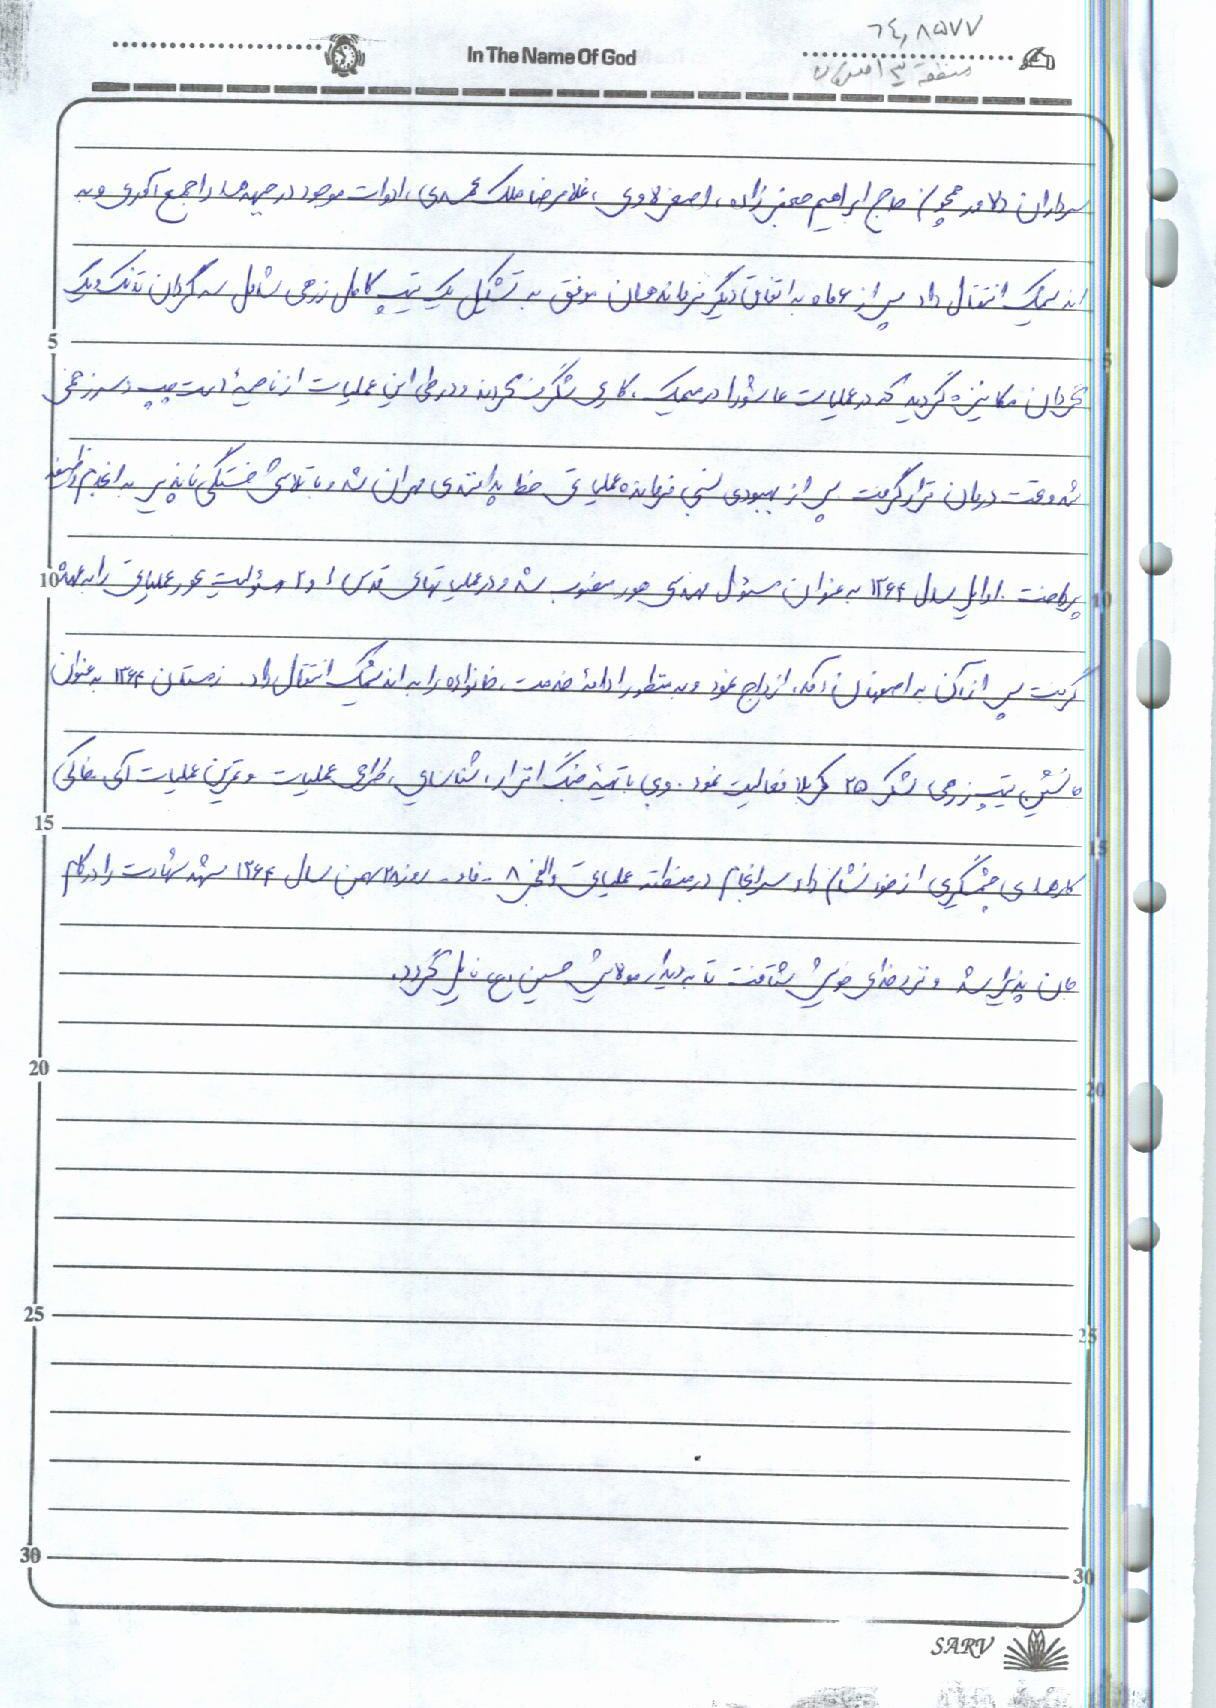 In The Name Of God
۶۴۰۸۵۷۷
منطقه ۳
سرداران دلاور همچون حاج ابراهیم جعفرزاده، اصغر لاوی، غلامرضا ملک محمدی، ادوات موجود در جبهه ها را جمع آوری و به
اندیمشک انتقال داد پس از ۶ ماه به اتفاق دیگر فرماندهان موفق به تشکیل یک تیپ کامل زرهی شامل سه گردان تانک و یک
گردان مکانیزه گردید که در عملیات عاشورا در میمک، کاری شگرف کردند و در طی این عملیات از ناحیۀ دست چپ و سر زخمی
شد و تحت درمان قرار گرفت پس از بهبودی نسبی فرمانده عملیاتی خط پدافندی مهران شد و با تلاش خستگی ناپذیر به انجام وظیفه
5
پرداخت. اوایل سال ۱۳۶۴ به عنوان مسئول مهندسی هور منصوب شد و در عملیاتهای قدس ۱ و ۲ مسؤلیت محور عملیاتی را به عهده
10
گرفت پس از آن به اصفهان آمد، ازدواج نمود و به منظور ادامۀ خدمت، خانواده را به اندیمشک انتقال داد. زمستان ۱۳۶۴ به عنوان
جانشین تیپ زرهی لشکر ۲۵ کربلا فعالیت نمود. وی با تهیۀ جنگ افزار، شناسایی، طراحی عملیات و تمرین عملیات آبی خاکی
15
کارهای چشمگیری از خود نشان داد سرانجام در منطقه عملیاتی والفجر ۸ - فاو - روز ۲۸ بهمن سال ۱۳۶۴ شهد شهادت را در کام
جان پذیرا شد و نزد خدای خویش شتافت تا به دیدار مولایش حسین (ع) نایل گردد.
20
25
30
SARV